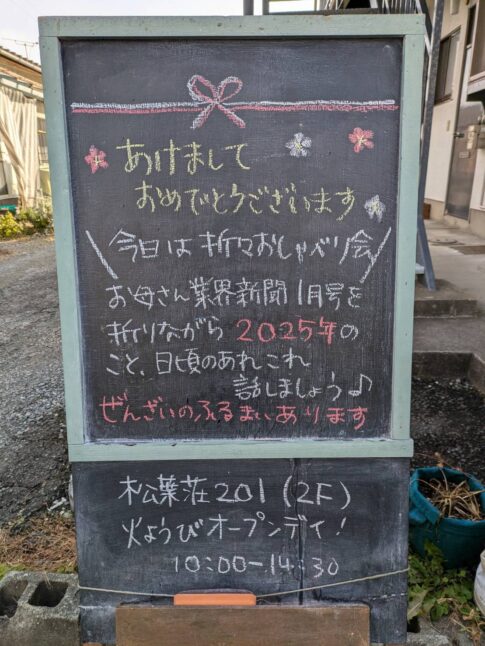 あけまして
おめでとうございます
今日は折々おしゃべり会
お母さん業界新聞1月号を
折りながら2025年の
こと、日頃のあれこれ
話しましょう♪
ぜんざいのふるまいあります
松葉荘201(2F)
火ようびオープンデイ!
10:00-14:30